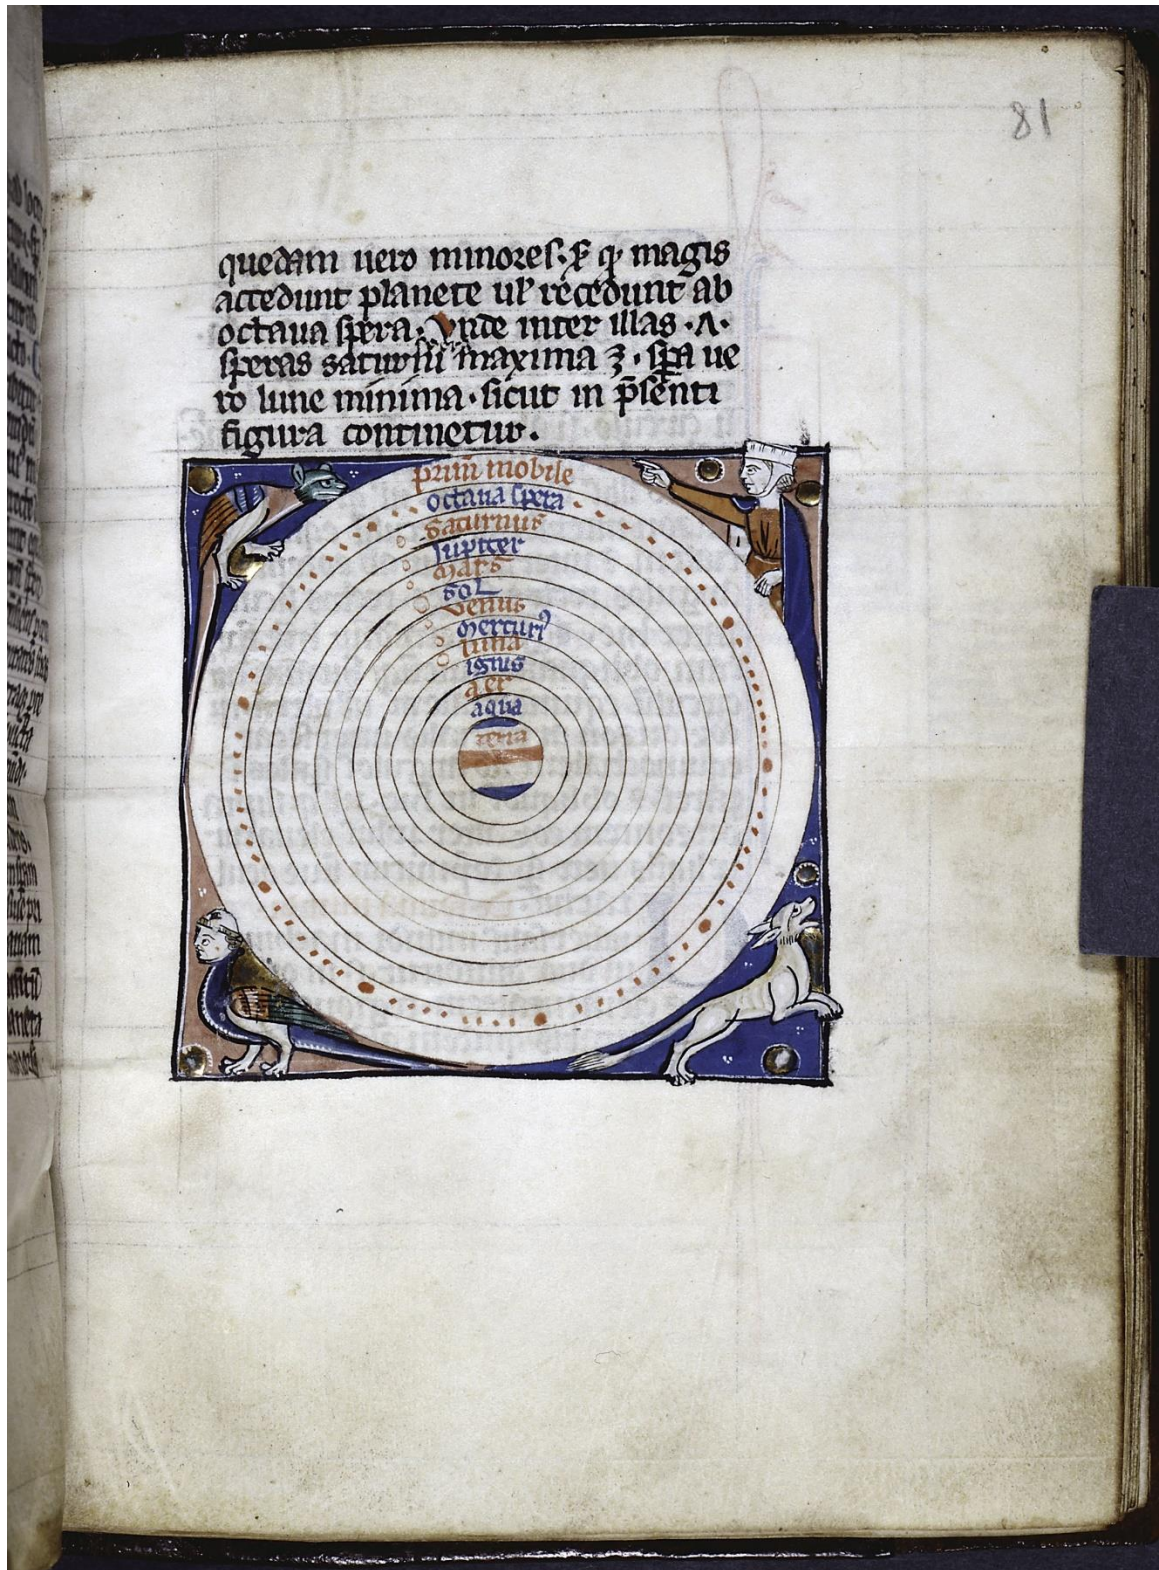 81
quedam uero minores· & q̛ magis
accedunt planete ul̛ recedunt ab
octaua spera· Vnde inter illas ·ʌ·
speras saturni maxima ꝫ· sp̄a ue
ro lune minima· sicut in p̄senti
figura continetur.
prim̄ mobile
octaua spera
saturnus
Jupiter
mars
sol
venus
mercuriꝰ
luna
ignis
aer
aqua
terra